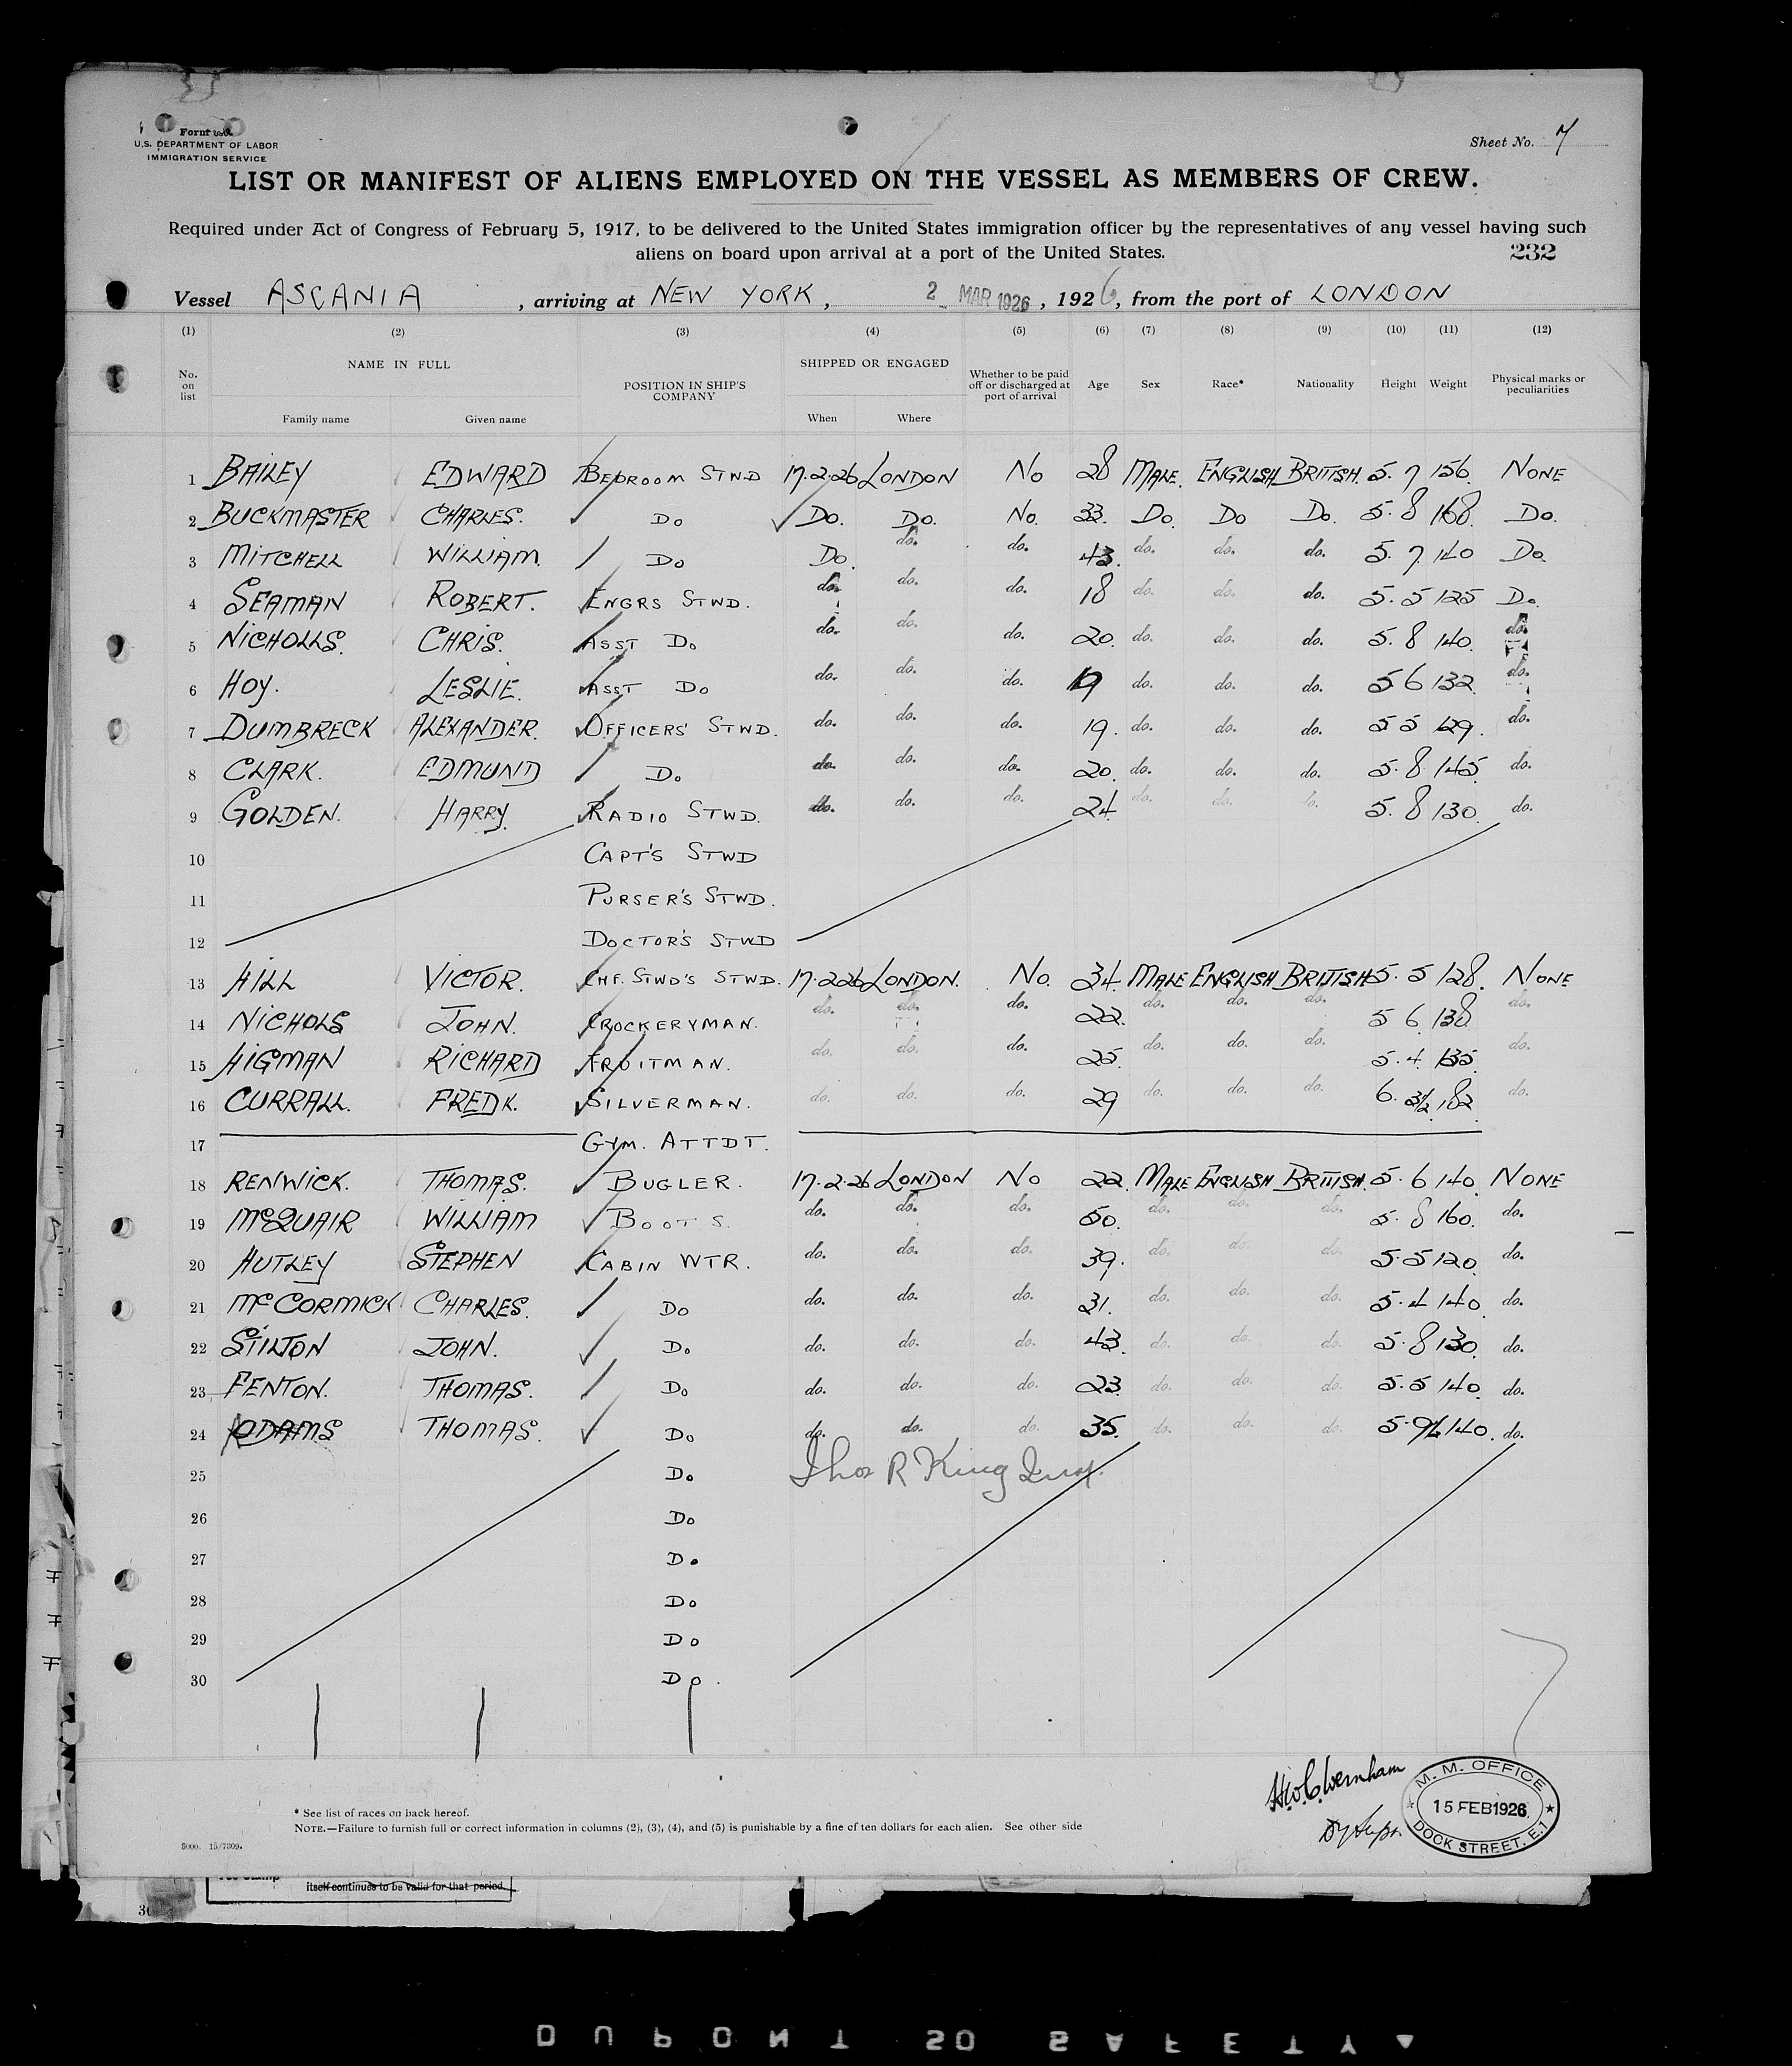 Form
U.S. DEPARTMENT OF LABOR
IMMIGRATION SERVICE
Sheet No. 7
LIST OR MANIFEST OF ALIENS EMPLOYED ON THE VESSEL AS MEMBERS OF CREW.
Required under Act of Congress of February 5, 1917, to be delivered to the United States immigration officer by the representatives of any vessel having such
aliens on board upon arrival at a port of the United States.
232
Vessel ASCANIA, arriving at NEW YORK, 2 MAR 1926, 1926, from the port of LONDON
(1) (2) (3) (4) (5) (6) (7) (8) (9) (10) (11) (12)
No. on list NAME IN FULL POSITION IN SHIP'S COMPANY SHIPPED OR ENGAGED Whether to be paid off or discharged at port of arrival Age Sex Race* Nationality Height Weight Physical marks or peculiarities
Family name Given name When Where
1 BAILEY EDWARD BEDROOM STWD 17.2.26 LONDON No 28 MALE. ENGLISH BRITISH. 5.7 156 NONE
2 BUCKMASTER CHARLES. Do Do. Do. No. 33. Do. Do Do. 5.8 168 Do.
3 MITCHELL WILLIAM. Do Do. do. do. 43. do. do. do. 5.7 140 Do
4 SEAMAN ROBERT. ENGRS STWD. do. do. do. 18 do. do. do. 5.5 125 Do.
5 NICHOLLS. CHRIS. ASST Do do. do. do. 20. do. do. do. 5.8 140. do.
6 HOY. LESLIE. ASST Do do. do. do. 19 do. do. do. 5 6 132. do.
7 DUMBRECK ALEXANDER. OFFICERS' STWD. do. do. do. 19. do. do. do. 5 5 129. do.
8 CLARK. EDMUND Do do. do. do. 20. do. do. do. 5.8 145 do.
9 GOLDEN. HARRY. RADIO STWD. do. do. do. 24. do. do. do. 5.8 130. do.
10 CAPT'S STWD
11 PURSER'S STWD.
12 DOCTOR'S STWD
13 HILL VICTOR. CHF. STWD'S STWD. 17.2.26 LONDON. No. 34. MALE ENGLISH BRITISH 5.5 128. NONE
14 NICHOLS JOHN. CROCKERYMAN. do. do. do. 22. do. do. do. 5 6 138 do.
15 HIGMAN RICHARD FRUITMAN. do. do. do. 25. do. do. do. 5.4 135. do.
16 CURRALL. FREDK. SILVERMAN. do. do. do. 29 do. do. do. 6. 3½ 182. do.
17 GYM. ATTDT.
18 RENWICK. THOMAS. BUGLER. 17.2.26 LONDON No 22. MALE ENGLISH BRITISH. 5.6 140. NONE
19 McQUAIR WILLIAM BOOTS. do. do. do. 50. do. do. do. 5.8 160. do.
20 HUTLEY STEPHEN CABIN WTR. do. do. do. 39. do. do. do. 5.5 120. do.
21 McCORMICK CHARLES. Do do. do. do. 31. do. do. do. 5.4 140. do.
22 STILTON JOHN. Do do. do. do. 43. do. do. do. 5.8 130. do.
23 FENTON. THOMAS. Do do. do. do. 23. do. do. do. 5.5 140. do.
24 ADAMS THOMAS. Do do. do. do. 35. do. do. do. 5.9½ 140. do.
25 Do Thos R King Insp.
26 Do
27 Do
28 Do
29 Do
30 Do.
H.W.C. Wernham
Dy Supt.
M. M. OFFICE
15 FEB 1926
DOCK STREET. E.1
* See list of races on back hereof.
NOTE.—Failure to furnish full or correct information in columns (2), (3), (4), and (5) is punishable by a fine of ten dollars for each alien. See other side
15/7309.
itself continues to be valid for that period.
DUPONT 50 SAFETY